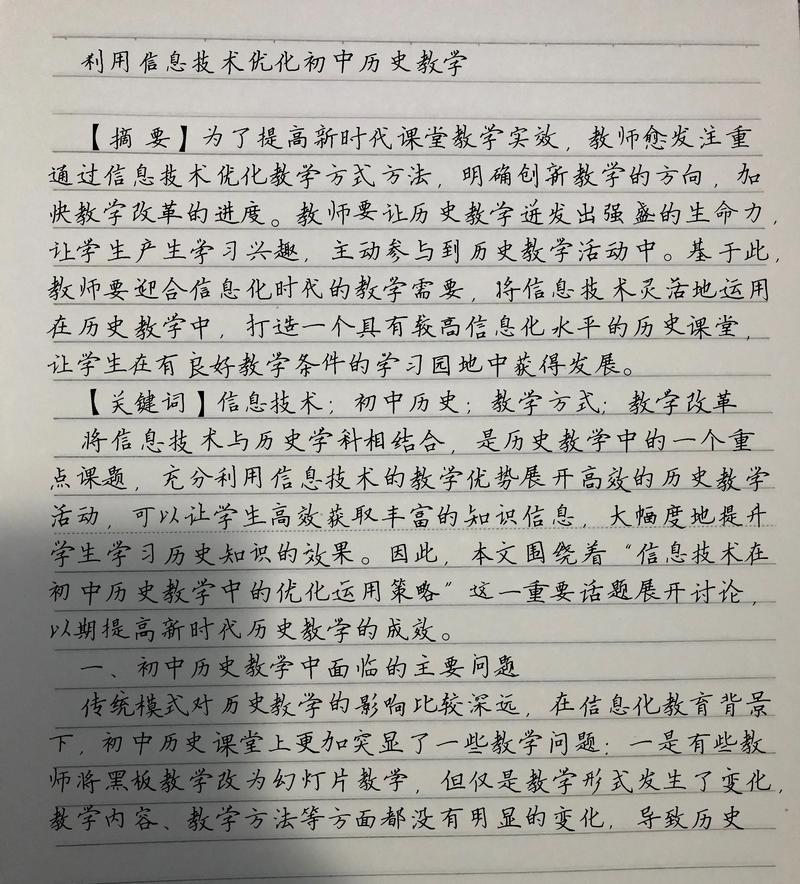 利用信息技术优化初中历史教学
【摘 要】为了提高新时代课堂教学实效，教师愈发注重
通过信息技术优化教学方式方法，明确创新教学的方向，加
快教学改革的进度。教师要让历史教学迸发出强盛的生命力，
让学生产生学习兴趣，主动参与到历史教学活动中。基于此，
教师要迎合信息化时代的教学需要，将信息技术灵活地运用
在历史教学中，打造一个具有较高信息化水平的历史课堂，
让学生在有良好教学条件的学习园地中获得发展。
【关键词】信息技术；初中历史；教学方式；教学改革
将信息技术与历史学科相结合，是历史教学中的一个重
点课题，充分利用信息技术的教学优势展开高效的历史教学
活动，可以让学生高效获取丰富的知识信息，大幅度地提升
学生学习历史知识的效果。因此，本文围绕着“信息技术在
初中历史教学中的优化运用策略”这一重要话题展开讨论，
以期提高新时代历史教学的成效。
一、初中历史教学中面临的主要问题
传统模式对历史教学的影响比较深远，在信息化教育背景
下，初中历史课堂上更加突显了一些教学问题：一是有些教
师将黑板教学改为幻灯片教学，但仅是教学形式发生了变化，
教学内容、教学方法等方面都没有明显的变化，导致历史